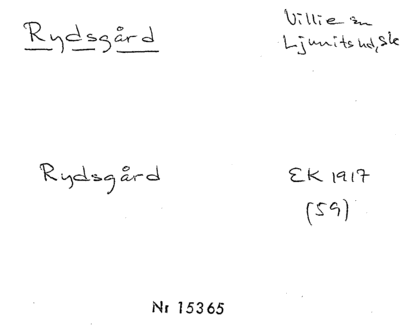 Rydsgård
Villie sn
Ljunits hd, Sk
Rydsgård
EK 1917
(59)
Nr 15365